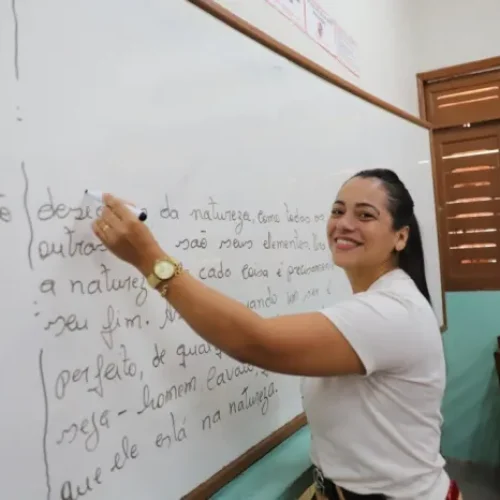 da natureza, como todos os
outras são seus elementos.
a natureza cada coisa é precisamente
seu fim.
perfeito, de
seja - homem, cavalo,
que ele está na natureza.